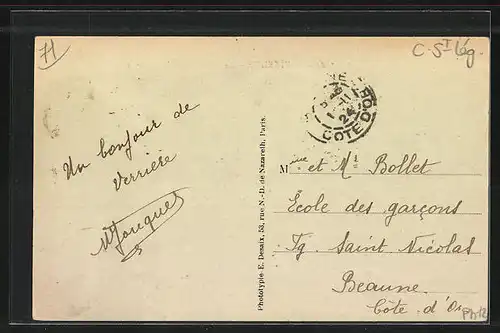 71
C-St Lég-
CÔTE D'OR
Un bonjour de
Verrière
Mme et Mr Bollet
École des garçons
Fg. Saint Nicolas
Beaune
Côte d'Or
Phototypie E. Desaix, 53, rue N.-D. de Nazareth, Paris.